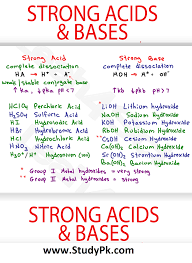 STRONG ACIDS
& BASES
Strong Acid
complete dissociation
HA → H⁺ + A⁻
weak/stable conjugate base
↑ka, ↓pka pH<7
HClO₄ Perchloric Acid
H₂SO₄ Sulfuric Acid
HI Hydroiodic Acid
HBr Hydrobromic Acid
HCl Hydrochloric Acid
HNO₃ Nitric Acid
H₃O⁺/H⁺ Hydronium
Strong Base
complete dissociation
MOH → M⁺ + OH⁻
↑kb ↓pkb pH>7
LiOH Lithium Hydroxide
NaOH Sodium Hydroxide
KOH Potassium Hydroxide
RbOH Rubidium Hydroxide
CsOH Cesium Hydroxide
Ca(OH)₂ Calcium Hydroxide
Sr(OH)₂ Strontium Hydroxide
Ba(OH)₂ Barium Hydroxide
* Group I Metal hydroxides = very strong
* Group II Metal hydroxides = strong
STRONG ACIDS
& BASES
www.StudyPk.com